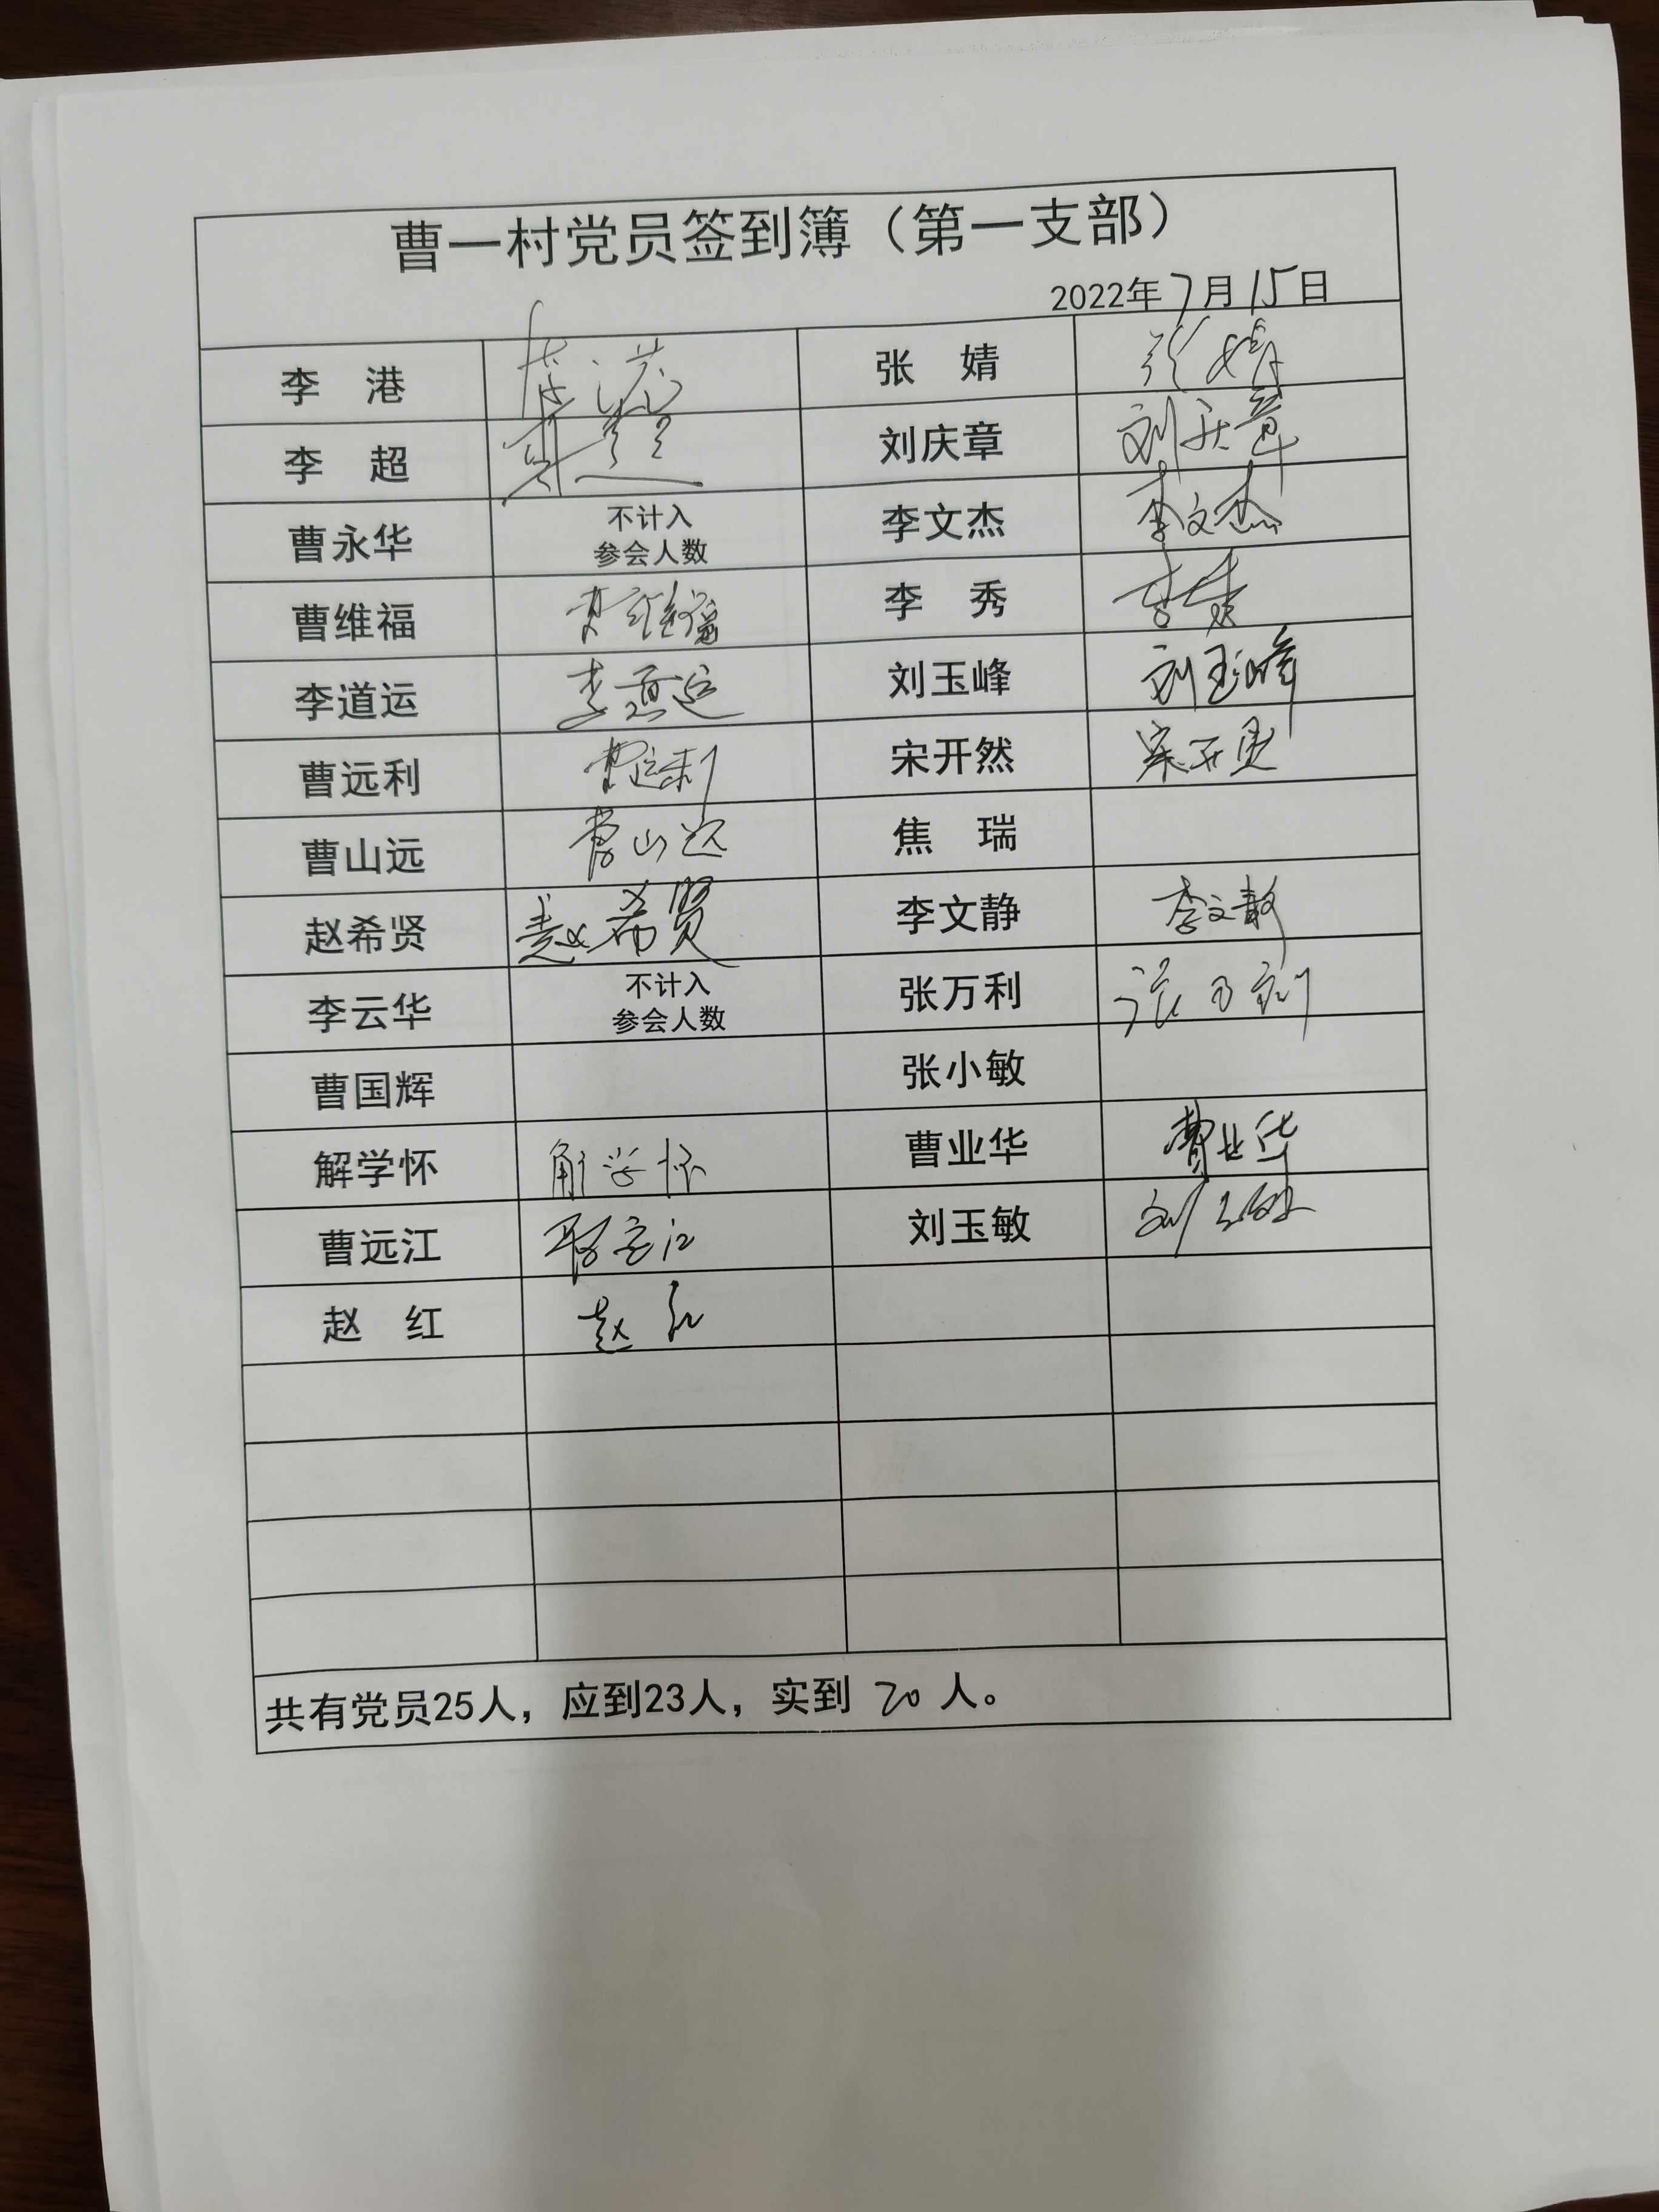 曹一村党员签到簿（第一支部）
2022年7月15日
李 港 李港 张 婧 张婧
李 超 李超 刘庆章 刘庆章
曹永华 不计入 参会人数 李文杰 李文杰
曹维福 曹维福 李 秀 李秀
李道运 李道运 刘玉峰 刘玉峰
曹远利 曹远利 宋开然 宋开
曹山远 曹山远 焦 瑞
赵希贤 赵希贤 李文静 李文静
李云华 不计入 参会人数 张万利 张万利
曹国辉 张小敏
解学怀 解学怀 曹业华 曹业华
曹远江 刘玉敏 刘玉敏
赵 红 赵红
共有党员25人，应到23人，实到 20 人。